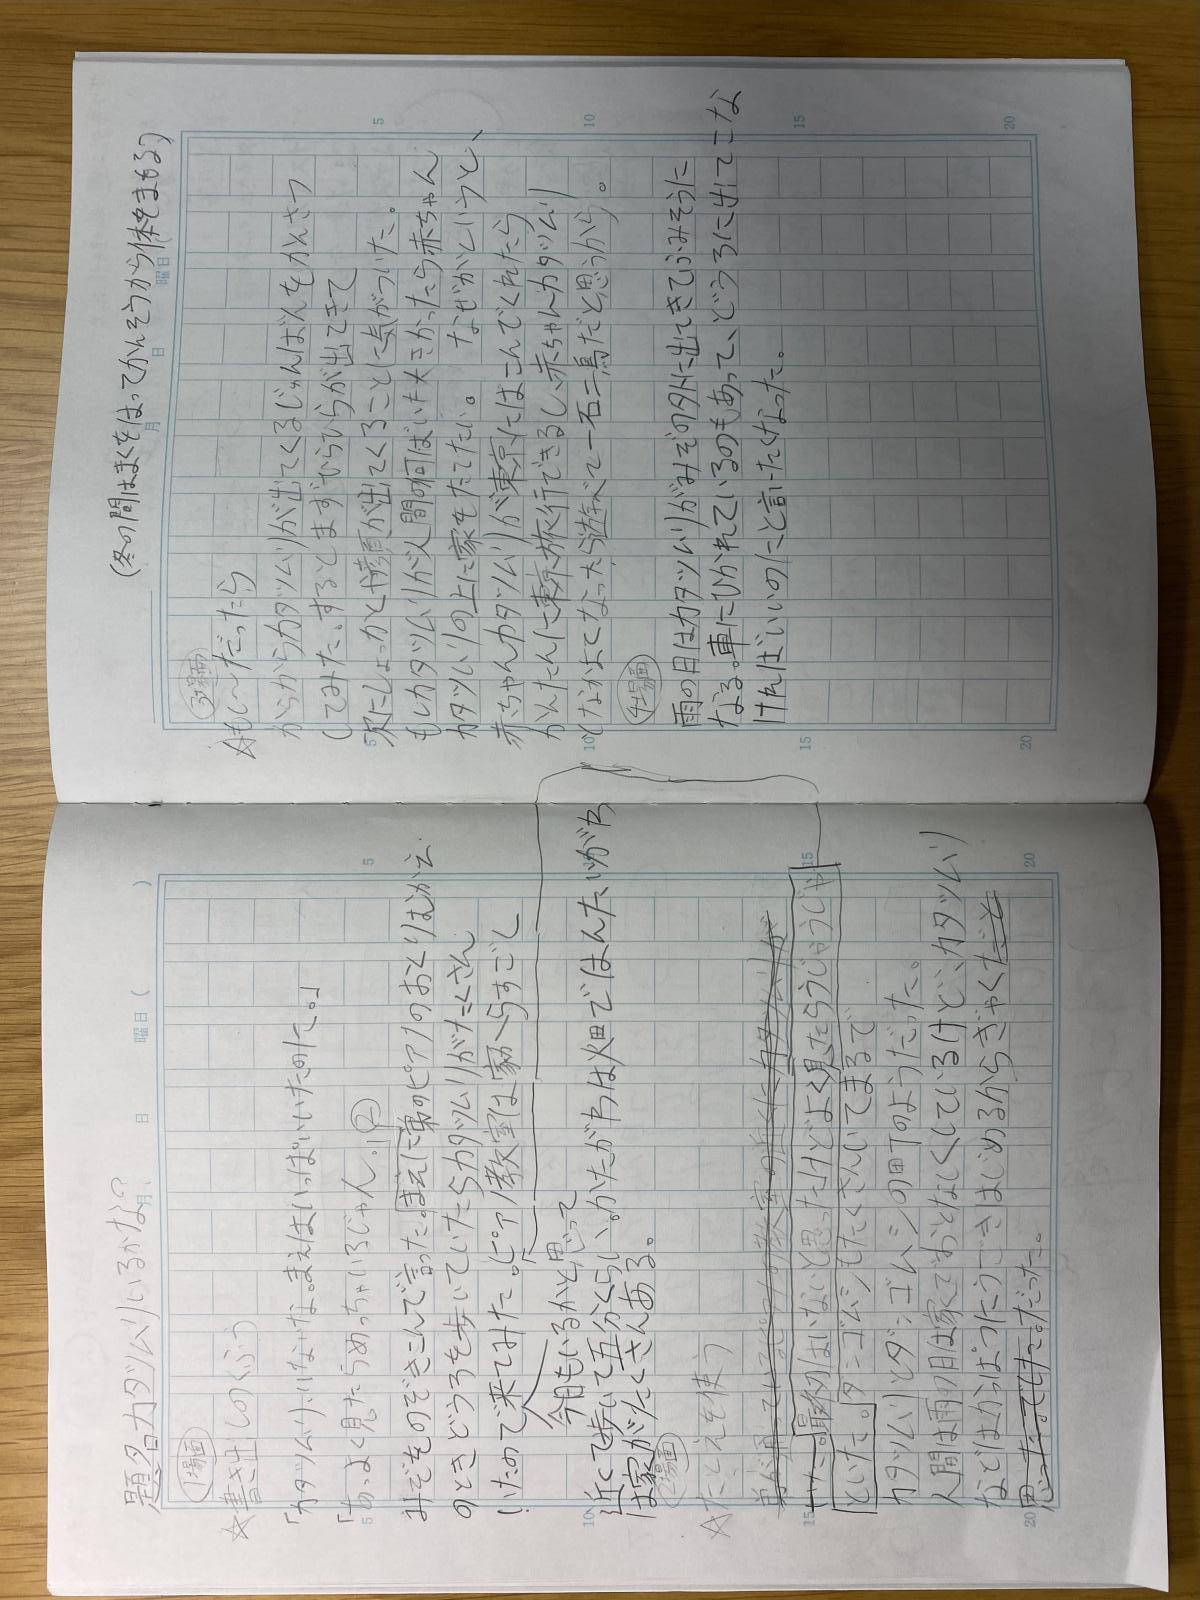 題名カタツムリいるかな?
月 日 曜日( )
①場面
☆書き出しのくふう
「カタツムリいないな。まえはいっぱいいたのに。」
「あっよく見たらめっちゃいるじゃん。」②
みぞをのぞきこんで言った。まえに弟のピアノのおくりむかえ
のときどうろを歩いていたらカタツムリがたくさん
いたので来てみた。(ピアノ教室は家からすごし
今日もいるかと思って
近くて歩いて五分くらい。かたがわは畑ではんたいがわ
は家がたくさんある。
②場面
☆たとえを使う
弟が通っているピアノ教室の近くにカタツムリが
いた。最初はいないと思ったけどよく見たらうじゃうじゃ
といた。ダンゴムシもたくさんいてまるで
カタツムリとダンゴムシの町のようだった。
人間は雨の日は家でおとなしくしているけど、カタツムリ
などはかっぱつにうごきはじめるからぎゃくだと
思った。でした。だった。
5
10
15
20
(冬の間はまくをはってかんそうから体をまもる)
月 日 曜日
③場面
☆もし〜だったら
からからカタツムリが出てくるじゅんばんをかんさつ
してみた。するとまずひらひらが出てきて
次にしょっかくや顔が出てくることに気がついた。
もしカタツムリが人間の何ばいも大きかったら赤ちゃん
カタツムリの上に家をたてたい。なぜかというと、
赤ちゃんカタツムリが東京にはこんでくれたら
かんたんに東京旅行できるし、赤ちゃんカタツムリ
となかよくなったら遊べて一石二鳥だと思うから。
④場面
雨の日はカタツムリがみぞの外に出てきてふみそうに
なる。車にひかれているのもあって、どうろに出てこな
ければいいのにと言いたくなった。
5
10
15
20